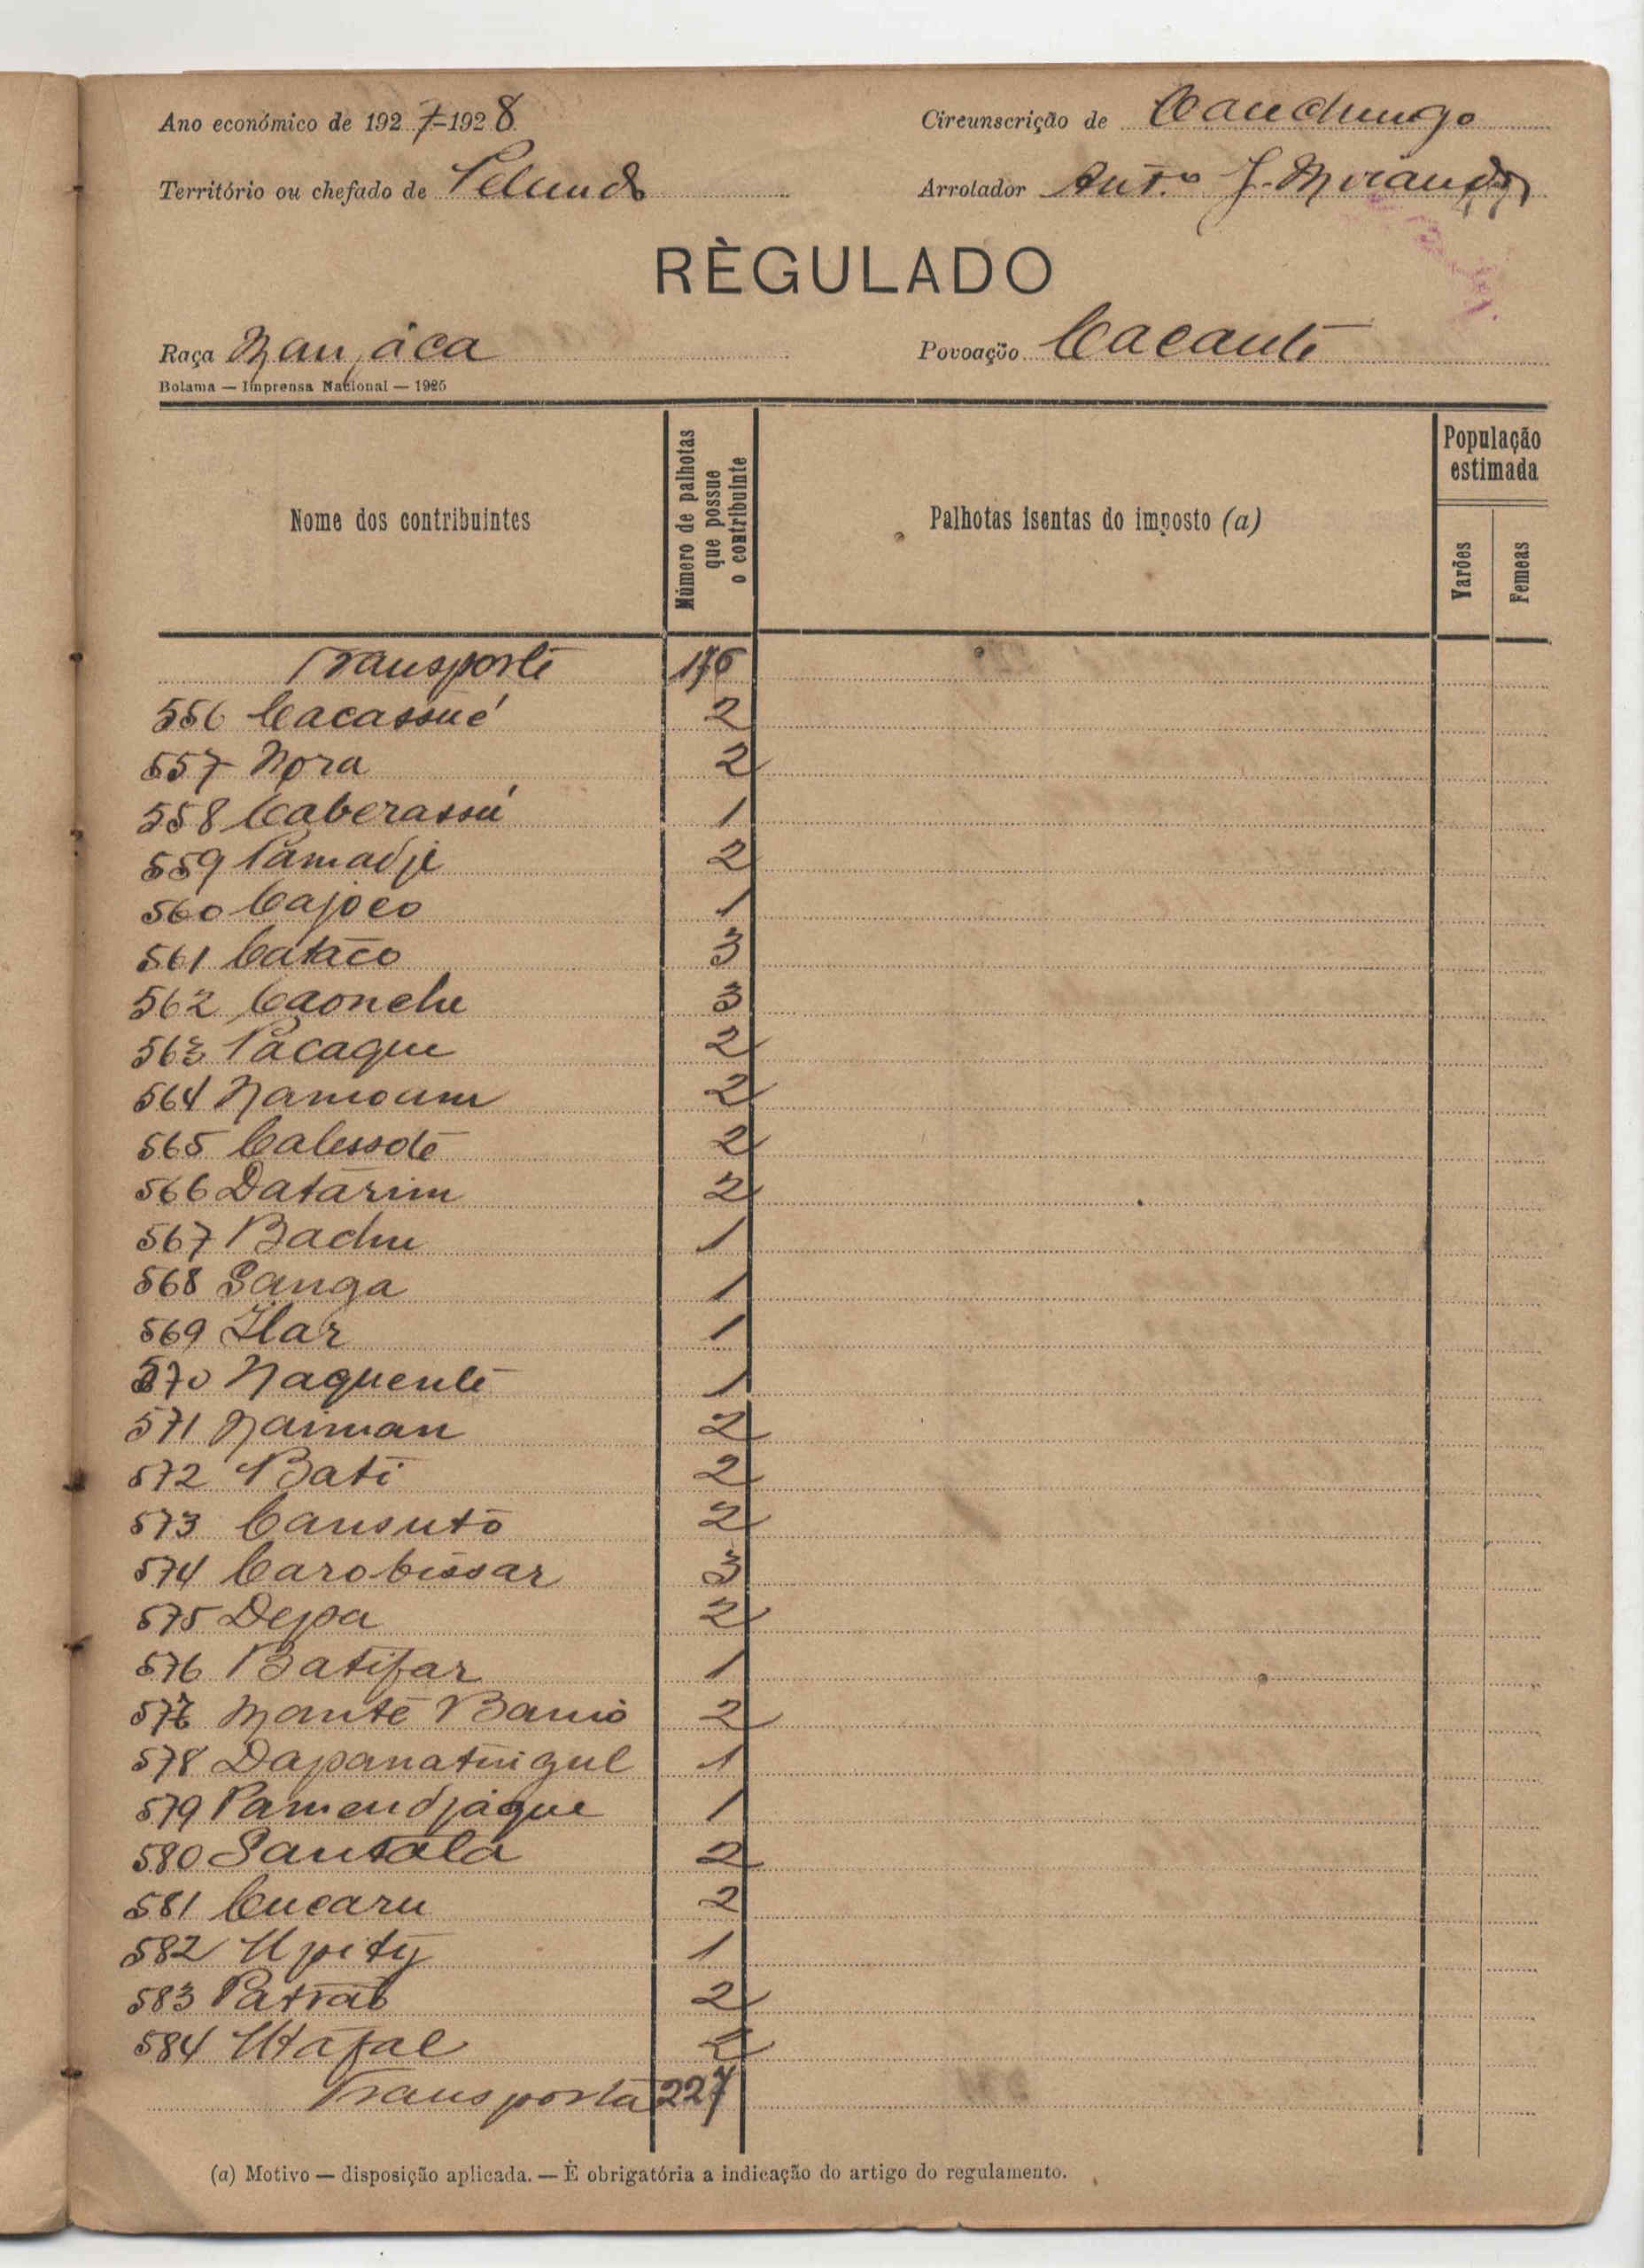 Ano económico de 1927-1928
Circunscrição de Cauchungo
Território ou chefado de Pelundo
Arrolador Antº J. Miranda
RÈGULADO
Raça Manjáca
Povoação Cacante
Bolama — Imprensa Nacional — 1925
Nome dos contribuintes
Número de palhotas que possue o contribuinte
Palhotas isentas do imposto (a)
População estimada
Varões
Femeas
Transporte 176
556 Cacassué 2
557 Nora 2
558 Caberassú 1
559 Pamadje 2
560 Cajoco 1
561 Cataco 3
562 Caonche 3
563 Pacaque 2
564 Namoum 2
565 Calessote 2
566 Datarim 2
567 Bachu 1
568 Sanga 1
569 Ilar 1
570 Naquente 1
571 Naiman 2
572 Bati 2
573 Cansuto 2
574 Carobissar 3
575 Depa 2
576 Batifar 1
577 Mante Banió 2
578 Dapanatingul 1
579 Pamendjaque 1
580 Santola 2
581 Cucaru 2
582 Upity 1
583 Patrab 2
584 Utafal 2
Transporta 227
(a) Motivo — disposição aplicada. — È obrigatória a indicação do artigo do regulamento.